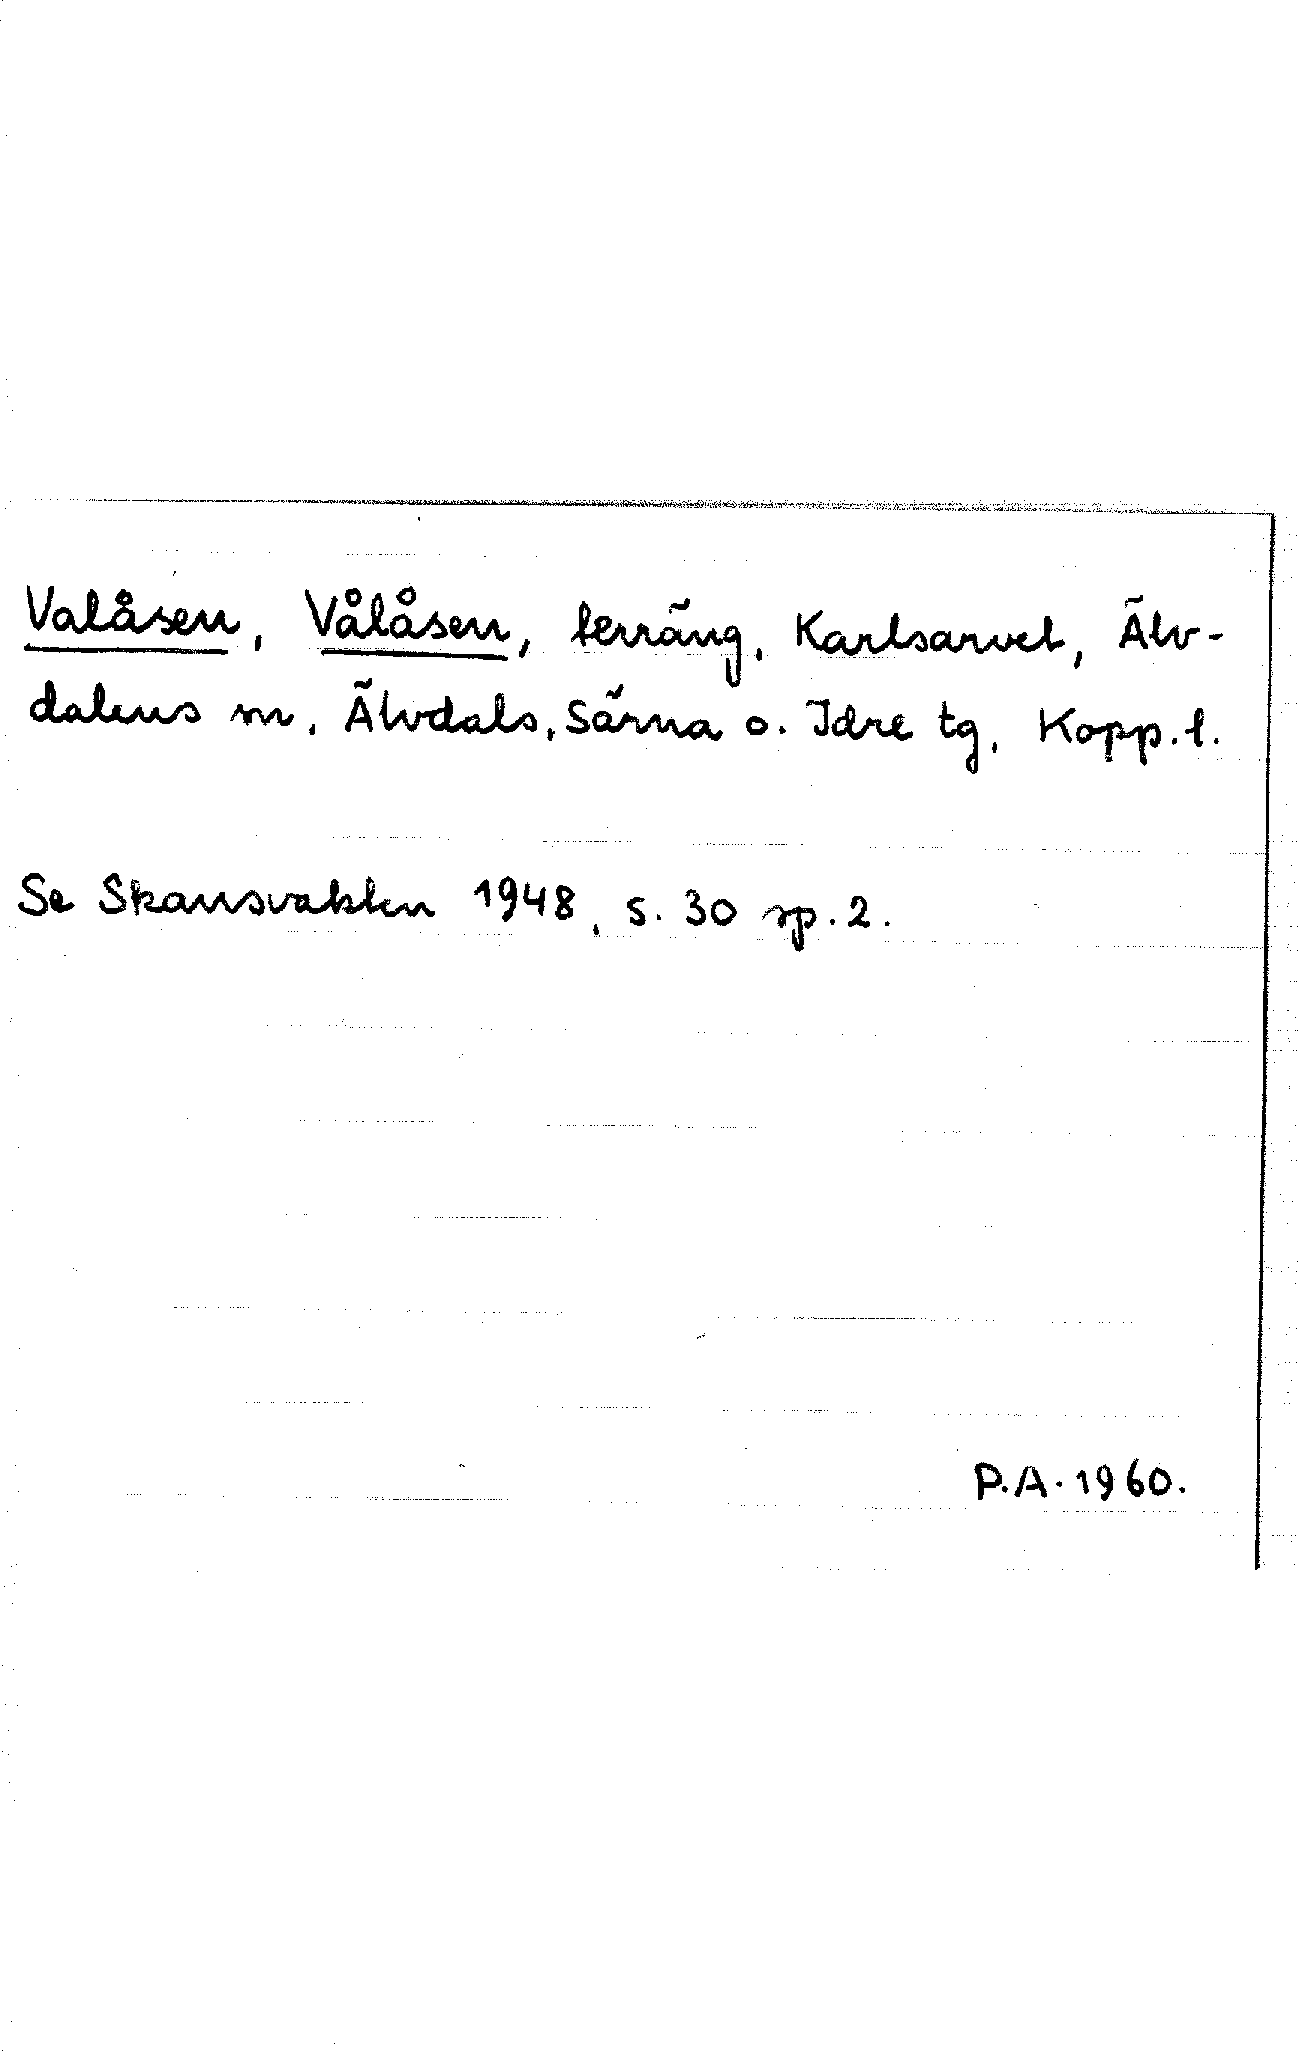 Valåsen, Vålåsen, terräng, Karlsarvet, Älv-
dalens m, Älvdals, Särna o. Idre tg, Kopp. l.
Se Skansvakten 1948, s. 30 sp. 2.
P.A. 1960.